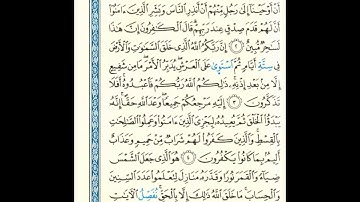 أَنْ أَوْحَيْنَا إِلَىٰ رَجُلٍ مِّنْهُمْ أَنْ أَنذِرِ النَّاسَ وَبَشِّرِ الَّذِينَ ءَامَنُوا
أَنَّ لَهُمْ قَدَمَ صِدْقٍ عِندَ رَبِّهِمْ قَالَ الْكَافِرُونَ إِنَّ هَٰذَا
لَسَٰحِرٌ مُّبِينٌ ٢ إِنَّ رَبَّكُمُ اللَّهُ الَّذِي خَلَقَ السَّمَٰوَٰتِ وَالْأَرْضَ
فِي سِتَّةِ أَيَّامٍ ثُمَّ اسْتَوَىٰ عَلَى الْعَرْشِ يُدَبِّرُ الْأَمْرَ مَا مِن شَفِيعٍ
إِلَّا مِنْ بَعْدِ إِذْنِهِ ذَٰلِكُمُ اللَّهُ رَبُّكُمْ فَاعْبُدُوهُ أَفَلَا
تَذَكَّرُونَ ٣ إِلَيْهِ مَرْجِعُكُمْ جَمِيعًا وَعْدَ اللَّهِ حَقًّا إِنَّهُ
يَبْدَؤُا الْخَلْقَ ثُمَّ يُعِيدُهُ لِيَجْزِيَ الَّذِينَ ءَامَنُوا وَعَمِلُوا الصَّٰلِحَٰتِ
بِالْقِسْطِ وَالَّذِينَ كَفَرُوا لَهُمْ شَرَابٌ مِّنْ حَمِيمٍ وَعَذَابٌ
أَلِيمٌ بِمَا كَانُوا يَكْفُرُونَ ٤ هُوَ الَّذِي جَعَلَ الشَّمْسَ
ضِيَاءً وَالْقَمَرَ نُورًا وَقَدَّرَهُ مَنَازِلَ لِتَعْلَمُوا عَدَدَ السِّنِينَ
وَالْحِسَابَ مَا خَلَقَ اللَّهُ ذَٰلِكَ إِلَّا بِالْحَقِّ نُفَصِّلُ الْآيَٰتِ